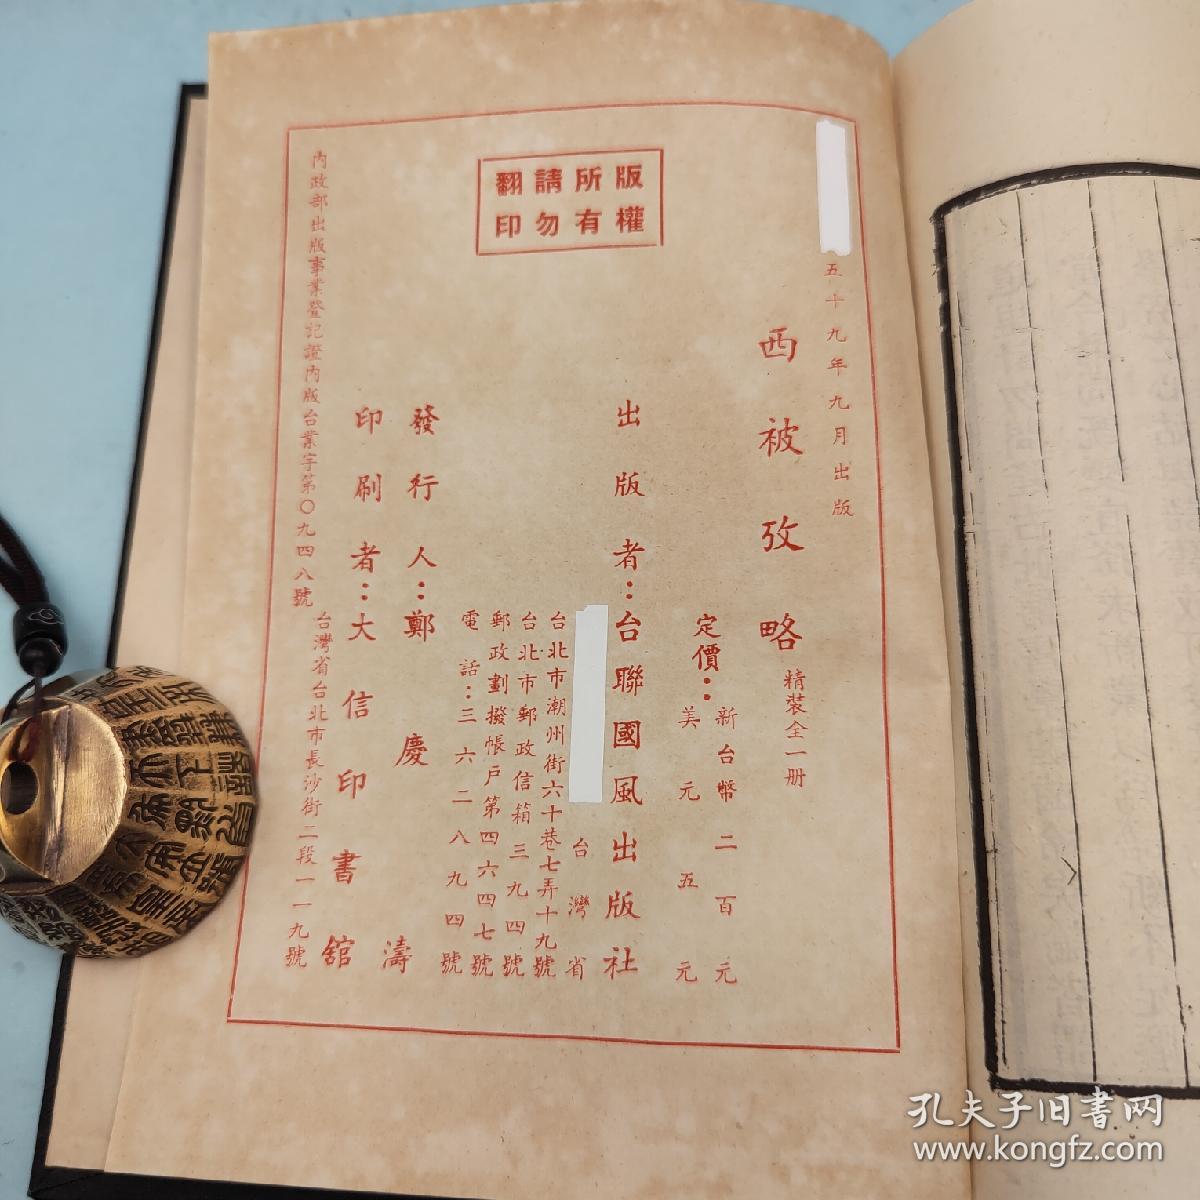 五十九年九月出版
版權
所有
請勿
翻印
西被攷略 精裝全一册
定價：新台幣二百元
美元五元
出版者：台聯國風出版社
台灣省
台北市潮州街六十巷七弄十九號
台北市郵政信箱三九四號
郵政劃撥帳戶第四六四七號
電話：三六二八九四號
發行人：鄭慶濤
印刷者：大信印書舘
台灣省台北市長沙街二段一一九號
內政部出版事業登記證內版台業字第〇九四八號
孔夫子旧书网
www.kongfz.com